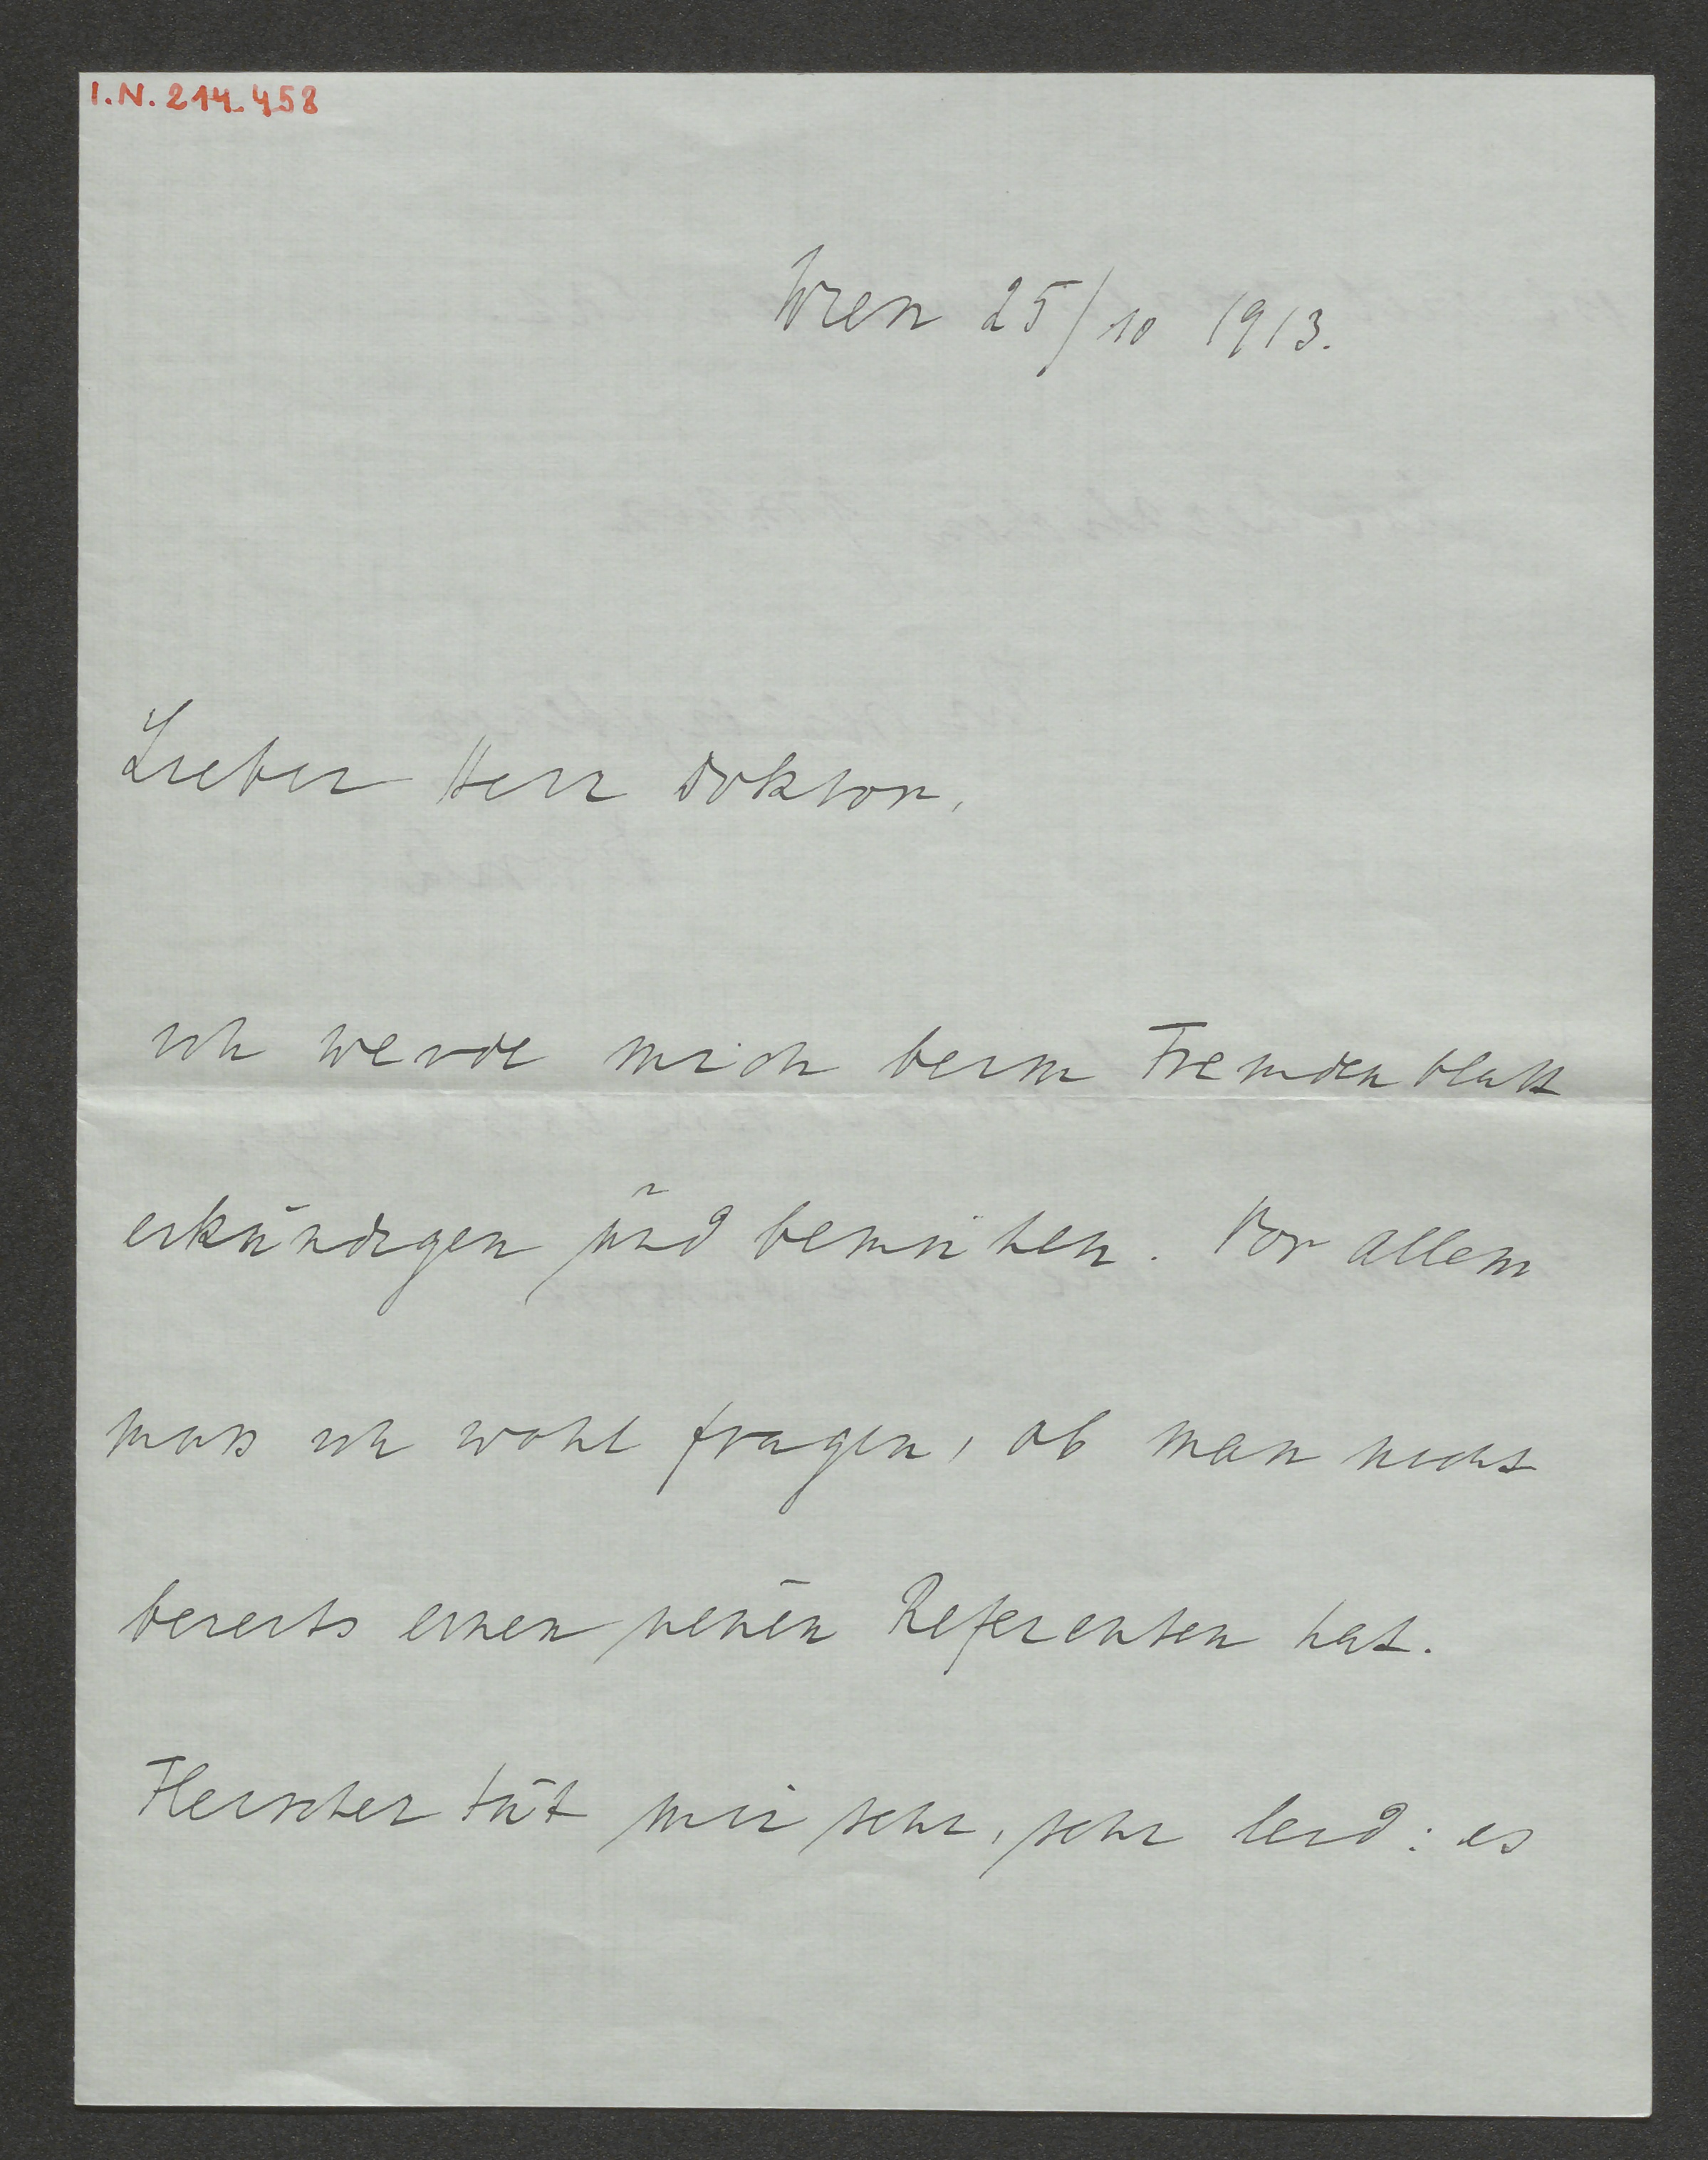 I.N. 214.458
Wien 25/10 1913.
Lieber Herr Doktor,
ich werde mich beim Fremdenblatt
erkundigen und bemühen. Vor allem
muss ich wohl fragen, ob man nicht
bereits einen neuen Referenten hat.
Fleischer tut mir sehr, sehr leid: es